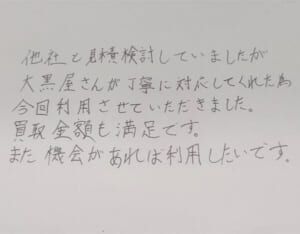 他社と見積検討していましたが
大黒屋さんが丁寧に対応してくれた為
今回利用させていただきました。
買取金額も満足です。
また機会があれば利用したいです。